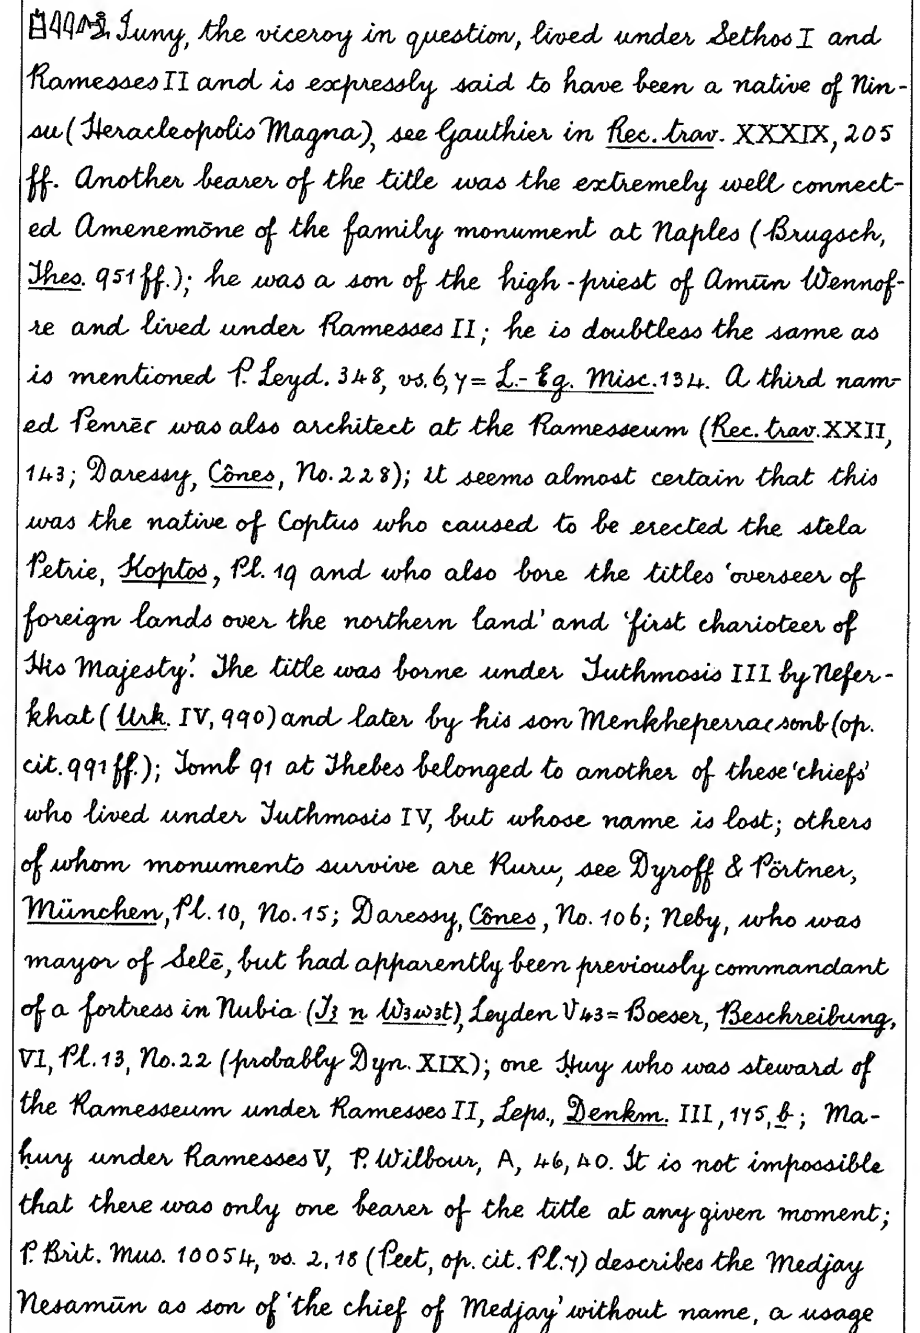 Iuny, the viceroy in question, lived under Sethos I and
Ramesses II and is expressly said to have been a native of Nin-
su (Heracleopolis Magna), see Gauthier in Rec. trav. XXXIX, 205
ff. Another bearer of the title was the extremely well connect-
ed Amenemōne of the family monument at Naples (Brugsch,
Thes. 951 ff.); he was a son of the high-priest of Amūn Wennof-
re and lived under Ramesses II; he is doubtless the same as
is mentioned P. Leyd. 348, vs. 6,7 = L.-Eg. Misc. 134. A third nam-
ed Penrēꜥ was also architect at the Ramesseum (Rec. trav. XXII,
143; Daressy, Cônes, No. 228); it seems almost certain that this
was the native of Coptus who caused to be erected the stela
Petrie, Koptos, Pl. 19 and who also bore the titles 'overseer of
foreign lands over the northern land' and 'first charioteer of
His Majesty'. The title was borne under Tuthmosis III by Nefer-
khat (Urk. IV, 990) and later by his son Menkheperraꜥsonb (op.
cit. 991 ff.); Tomb 91 at Thebes belonged to another of these 'chiefs'
who lived under Tuthmosis IV, but whose name is lost; others
of whom monuments survive are Ruru, see Dyroff & Pörtner,
München, Pl. 10, No. 15; Daressy, Cônes, No. 106; Neby, who was
mayor of Selē, but had apparently been previously commandant
of a fortress in Nubia (Ṯꜣ n Wꜣwꜣt), Leyden V 43 = Boeser, Beschreibung,
VI, Pl. 13, No. 22 (probably Dyn. XIX); one Ḥuy who was steward of
the Ramesseum under Ramesses II, Leps., Denkm. III, 175, b; Ma-
ḥuy under Ramesses V, P. Wilbour, A, 46, 40. It is not impossible
that there was only one bearer of the title at any given moment;
P. Brit. Mus. 10054, vs. 2, 18 (Peet, op. cit. Pl. 7) describes the Medjay
Nesamūn as son of 'the chief of Medjay' without name, a usage